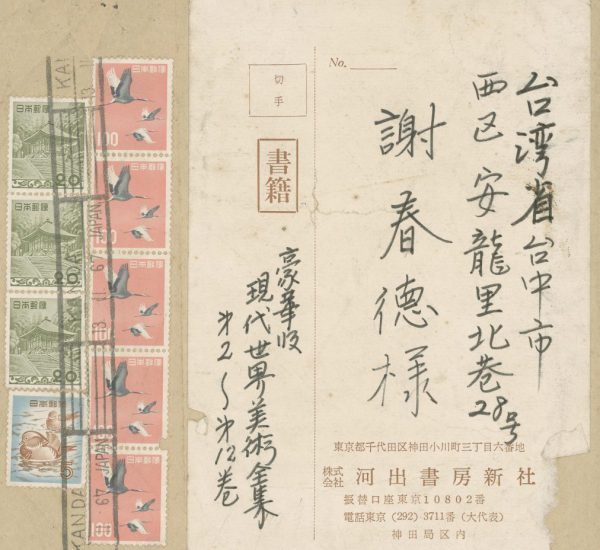 No.
台湾省台中市
西区安龍里北巷28号
謝春德様
切手
書籍
豪華版
現代世界美術全集
才2〜才12巻
東京都千代田区神田小川町三丁目六番地
株式会社 河出書房新社
振替口座東京10802番
電話東京(292)3711番(大代表)
神田局区内
日本郵便
100
日本郵便
100
日本郵便
100
日本郵便
100
日本郵便
100
日本郵便
80
日本郵便
80
日本郵便
80
日本郵便
KANDA
67 JAPAN
KANDA
67 JAPAN